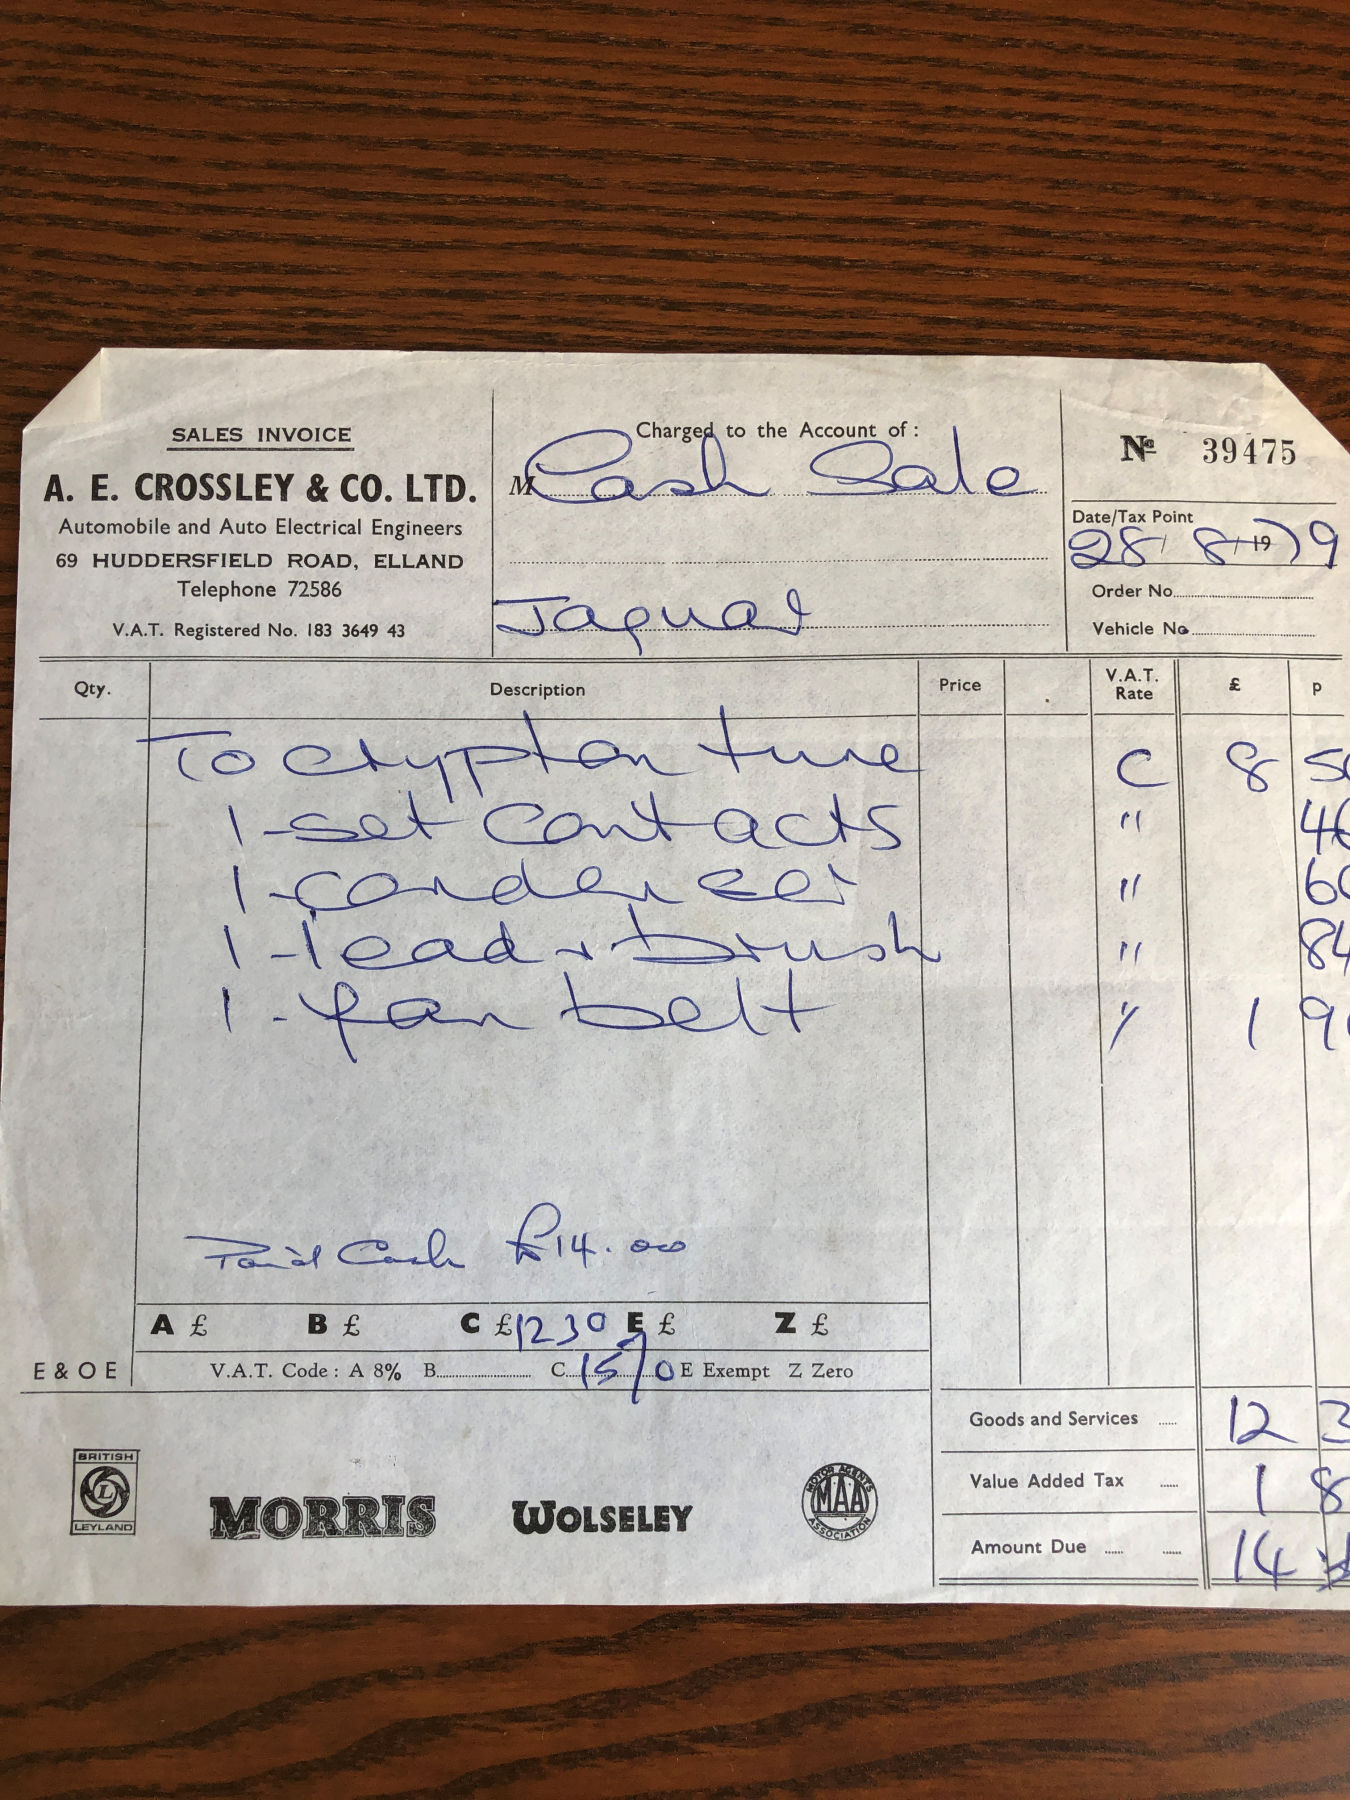 SALES INVOICE
A. E. CROSSLEY & CO. LTD.
Automobile and Auto Electrical Engineers
69 HUDDERSFIELD ROAD, ELLAND
Telephone 72586
V.A.T. Registered No. 183 3649 43
Charged to the Account of :
M Cash Sale
Jaguar
No 39475
Date/Tax Point
28/ 8/ 1979
Order No.
Vehicle No.
Qty. Description Price V.A.T. Rate £ p
To crypton tune C 8 5
1 - set contacts " 4
1 - condenser " 6
1 - lead + brush " 84
1 - fan belt " 1 9
Paid Cash £14.00
A £ B £ C £1230 E £ Z £
E & O E V.A.T. Code : A 8% B. C. 15% E Exempt Z Zero
Goods and Services 12 3
Value Added Tax 1 8
Amount Due 14
BRITISH
L
LEYLAND
MORRIS
WOLSELEY
MOTOR AGENTS
MAA
ASSOCIATION